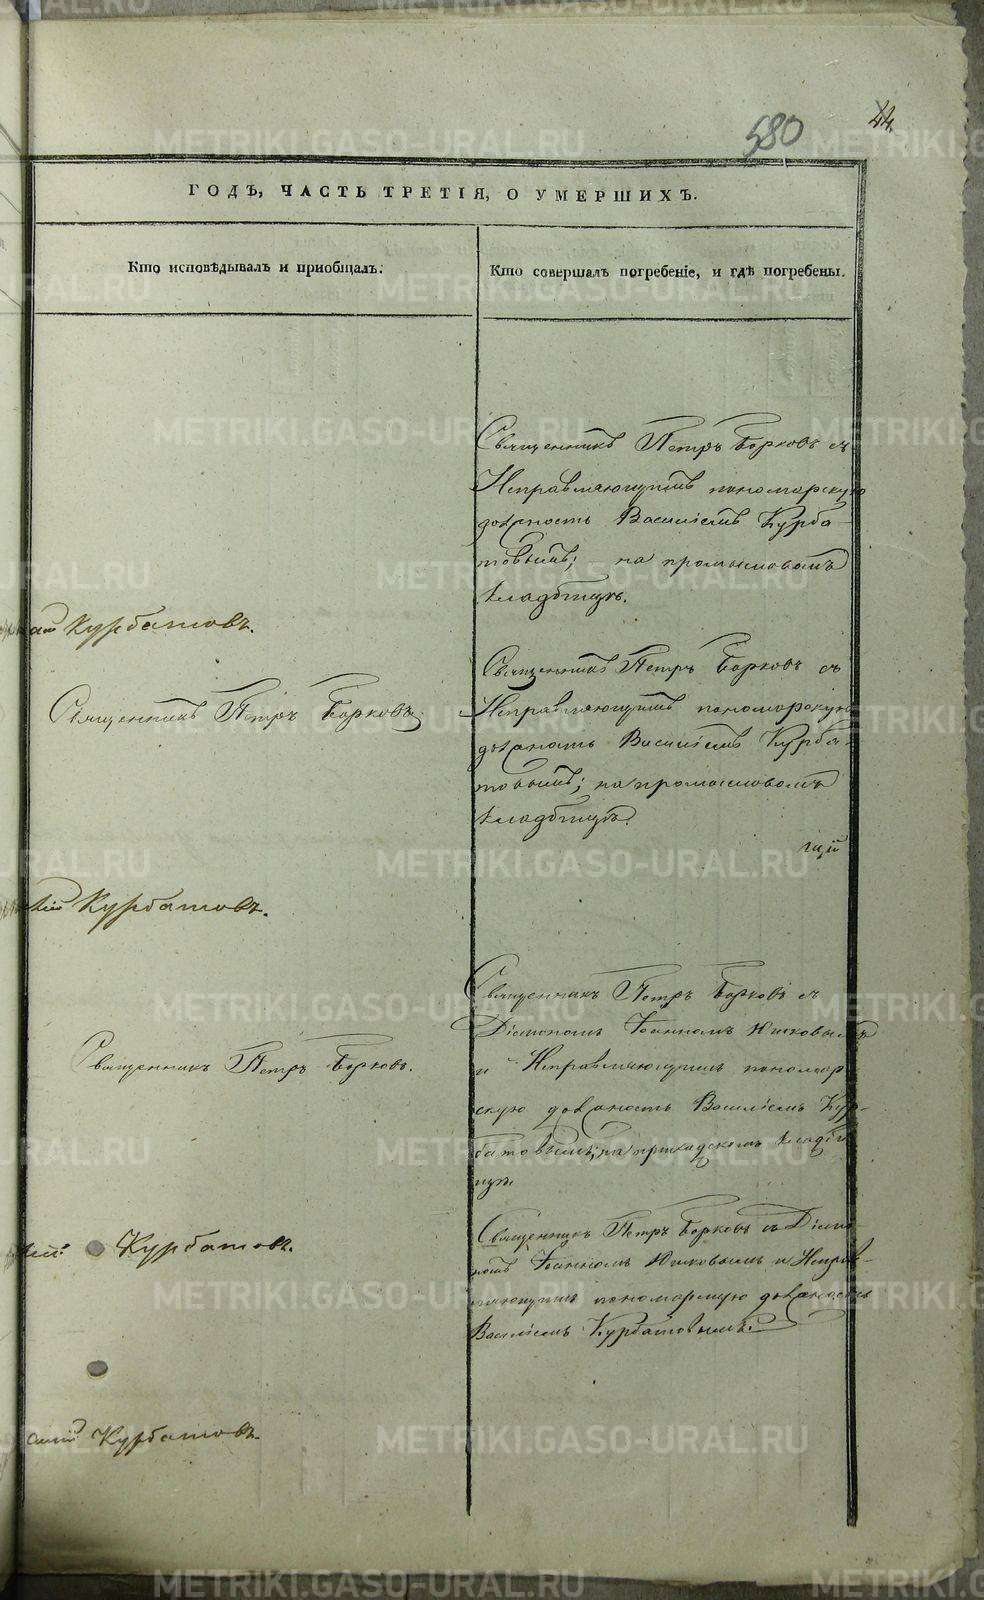 580
44.
ГОДѢ, ЧАСТЬ ТРЕТІЯ, О УМЕРШИХЪ.
Кто исповѣдывалъ и приобщалъ.
Кто совершалъ погребеніе, и гдѣ погребены.
Священникъ Петръ Борковъ съ
Исправляющимъ пономарскую
должность Василіемъ Курба-
товымъ; на промысловомъ
кладбищѣ.
Курбатовъ.
Священникъ Петръ Борковъ;
Священникъ Петръ Борковъ съ
Исправляющимъ пономарскую
должность Василіемъ Курба-
товымъ; на промысловомъ
кладбищѣ.
щій
Курбатовъ.
Священникъ Петръ Борковъ.
Священникъ Петръ Борковъ съ
Діакономъ Іоанномъ
и Исправляющимъ пономар
скую должность Василіемъ Кур-
батовымъ; на приходскомъ кладби
щѣ.
Курбатовъ.
Священникъ Петръ Борковъ съ Діако
номъ Іоанномъ и Исправ-
ляющимъ пономарскую должность
Василіемъ Курбатовымъ.
Курбатовъ.
METRIKI.GASO-URAL.RU